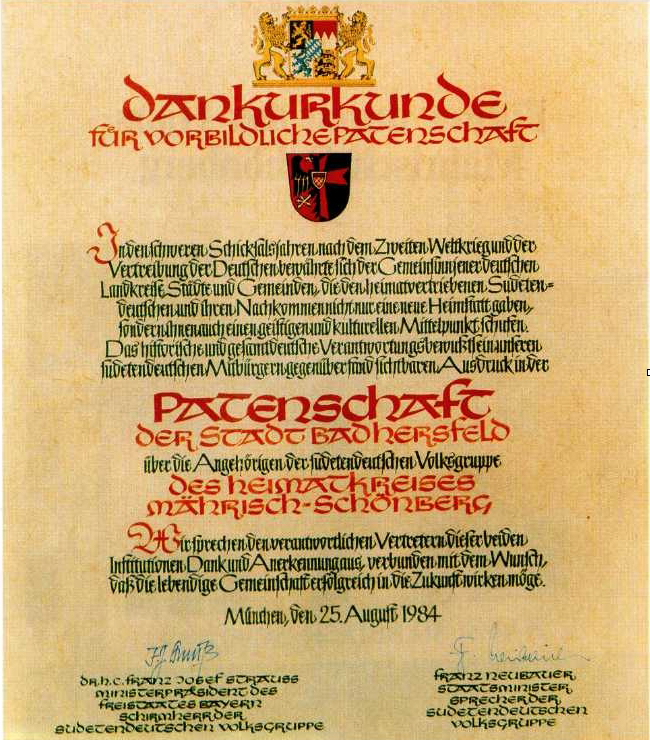 Dankurkunde
für vorbildliche Patenschaft
In den schweren Schicksalsjahren nach dem Zweiten Weltkrieg und der
Vertreibung der Deutschen bewährte sich der Gemeinsinn jener deutschen
Landkreise, Städte und Gemeinden, die den heimatvertriebenen Sudeten=
deutschen und ihren Nachkommen nicht nur eine neue Heimstatt gaben,
sondern ihnen auch einen geistigen und kulturellen Mittelpunkt schufen.
Das historische und gesamtdeutsche Verantwortungsbewußtsein unseren
sudetendeutschen Mitbürgern gegenüber fand sichtbaren Ausdruck in der
Patenschaft
der Stadt Bad Hersfeld
über die Angehörigen der sudetendeutschen Volksgruppe
des Heimatkreises
Mährisch-Schönberg
Wir sprechen den verantwortlichen Vertretern dieser beiden
Institutionen Dank und Anerkennung aus, verbunden mit dem Wunsch,
daß die lebendige Gemeinschaft erfolgreich in die Zukunft wirken möge.
München, den 25. August 1984
Dr. h.c. Franz Josef Strauss
Ministerpräsident des
Freistaates Bayern
Schirmherr der
Sudetendeutschen Volksgruppe
Franz Neubauer,
Staatsminister,
Sprecher der
Sudetendeutschen
Volksgruppe